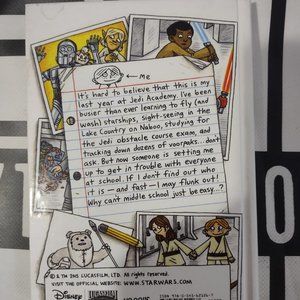 ← Me
It's hard to believe that this is my
last year at Jedi Academy. I've been
busier than ever learning to fly (and
wash) starships, sight-seeing in the
Lake Country on Naboo, studying for
the Jedi obstacle course exam, and
tracking down dozens of voorpaks... don't
ask. But now someone is setting me
up to get in trouble with everyone
at school. If I don't find out who
it is — and fast — I may flunk out!
Why can't middle school just be easy..?
© & TM 2015 LUCASFILM, LTD. All rights reserved.
VISIT THE OFFICIAL WEBSITE: WWW.STARWARS.COM
Disney